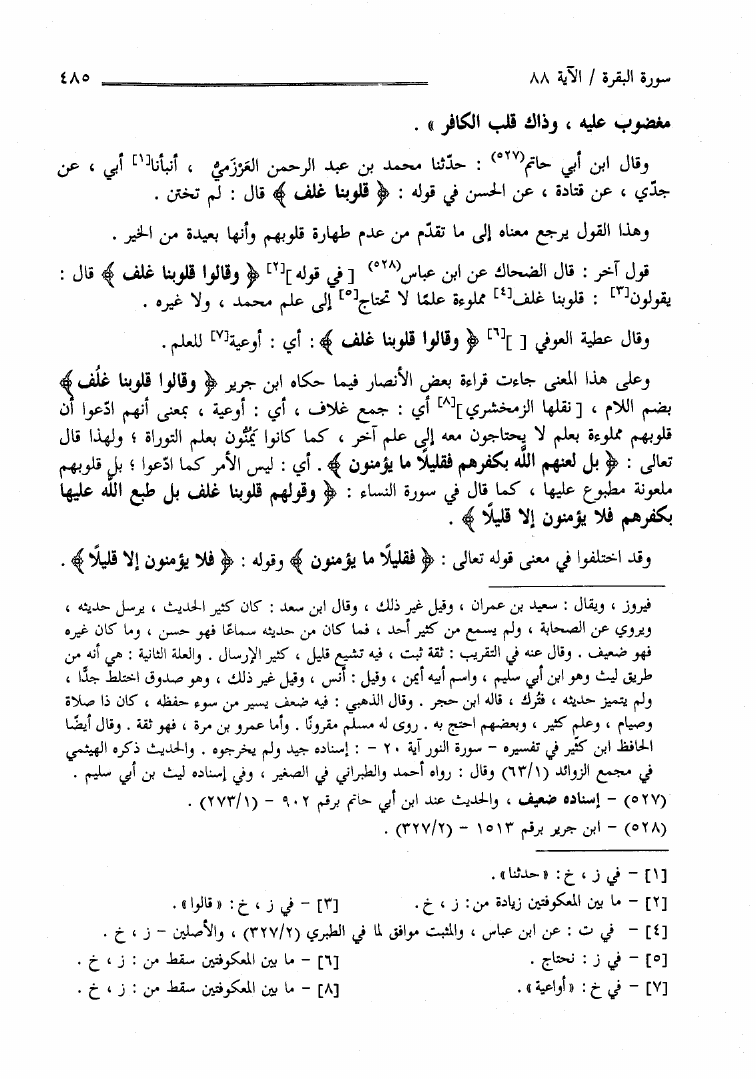 سورة البقرة / الآية ٨٨ ٤٨٥
مغضوب عليه ، وذاك قلب الكافر » .
وقال ابن أبي حاتم(٥٢٧) : حدّثنا محمد بن عبد الرحمن العَرْزَميّ ، أنبأنا[١] أبي ، عن
جدّي ، عن قتادة ، عن الحسن في قوله : ﴿ قلوبنا غلف ﴾ قال : لم تختن .
وهذا القول يرجع معناه إلى ما تقدّم من عدم طهارة قلوبهم وأنها بعيدة من الخير .
قول آخر : قال الضحاك عن ابن عباس(٥٢٨) [ في قوله ][٢] ﴿ وقالوا قلوبنا غلف ﴾ قال :
يقولون[٣] : قلوبنا غلف[٤] مملوءة علمًا لا تحتاج[٥] إلى علم محمد ، ولا غيره .
وقال عطية العوفي [ ][٦] ﴿ وقالوا قلوبنا غلف ﴾ : أي : أوعية[٧] للعلم .
وعلى هذا المعنى جاءت قراءة بعض الأنصار فيما حكاه ابن جرير ﴿ وقالوا قلوبنا غلُف ﴾
بضم اللام ، [ نقلها الزمخشري ][٨] أي : جمع غلاف ، أي : أوعية ، بمعنى أنهم ادّعوا أن
قلوبهم مملوءة بعلم لا يحتاجون معه إلى علم آخر ، كما كانوا يَمُنُّون بعلم التوراة ؛ ولهذا قال
تعالى : ﴿ بل لعنهم اللَّه بكفرهم فقليلًا ما يؤمنون ﴾ . أي : ليس الأمر كما ادّعوا ؛ بل قلوبهم
ملعونة مطبوع عليها ، كما قال في سورة النساء : ﴿ وقولهم قلوبنا غلف بل طبع اللَّه عليها
بكفرهم فلا يؤمنون إلا قليلًا ﴾ .
وقد اختلفوا في معنى قوله تعالى : ﴿ فقليلًا ما يؤمنون ﴾ وقوله : ﴿ فلا يؤمنون إلا قليلًا ﴾ .
فيروز ، ويقال : سعيد بن عمران ، وقيل غير ذلك ، وقال ابن سعد : كان كثير الحديث ، يرسل حديثه ،
ويروي عن الصحابة ، ولم يسمع من كثير أحد ، فما كان من حديثه سماعًا فهو حسن ، وما كان غيره
فهو ضعيف . وقال عنه في التقريب : ثقة ثبت ، فيه تشيع قليل ، كثير الإرسال . والعلة الثانية : هي أنه من
طريق ليث وهو ابن أبي سليم ، واسم أبيه أيمن ، وقيل : أنس ، وقيل غير ذلك ، وهو صدوق اختلط جدًّا ،
ولم يتميز حديثه ، فتُرك ، قاله ابن حجر . وقال الذهبي : فيه ضعف يسير من سوء حفظه ، كان ذا صلاة
وصيام ، وعلم كثير ، وبعضهم احتج به . روى له مسلم مقرونًا . وأما عمرو بن مرة ، فهو ثقة . وقال أيضًا
الحافظ ابن كثير في تفسيره – سورة النور آية ٢٠ – : إسناده جيد ولم يخرجوه . والحديث ذكره الهيثمي
في مجمع الزوائد (٦٣/١) وقال : رواه أحمد والطبراني في الصغير ، وفي إسناده ليث بن أبي سليم .
(٥٢٧) – إسناده ضعيف ، والحديث عند ابن أبي حاتم برقم ٩٠٢ – (٢٧٣/١) .
(٥٢٨) – ابن جرير برقم ١٥١٣ – (٣٢٧/٢) .
[١] – في ز ، خ : « حدثنا » .
[٢] – ما بين المعكوفتين زيادة من : ز ، خ . [٣] – في ز ، خ : « قالوا » .
[٤] – في ت : عن ابن عباس ، والمثبت موافق لما في الطبري (٣٢٧/٢) ، والأصلين – ز ، خ .
[٥] – في ز : نحتاج . [٦] – ما بين المعكوفتين سقط من : ز ، خ .
[٧] – في خ : « أواعية » . [٨] – ما بين المعكوفتين سقط من : ز ، خ .